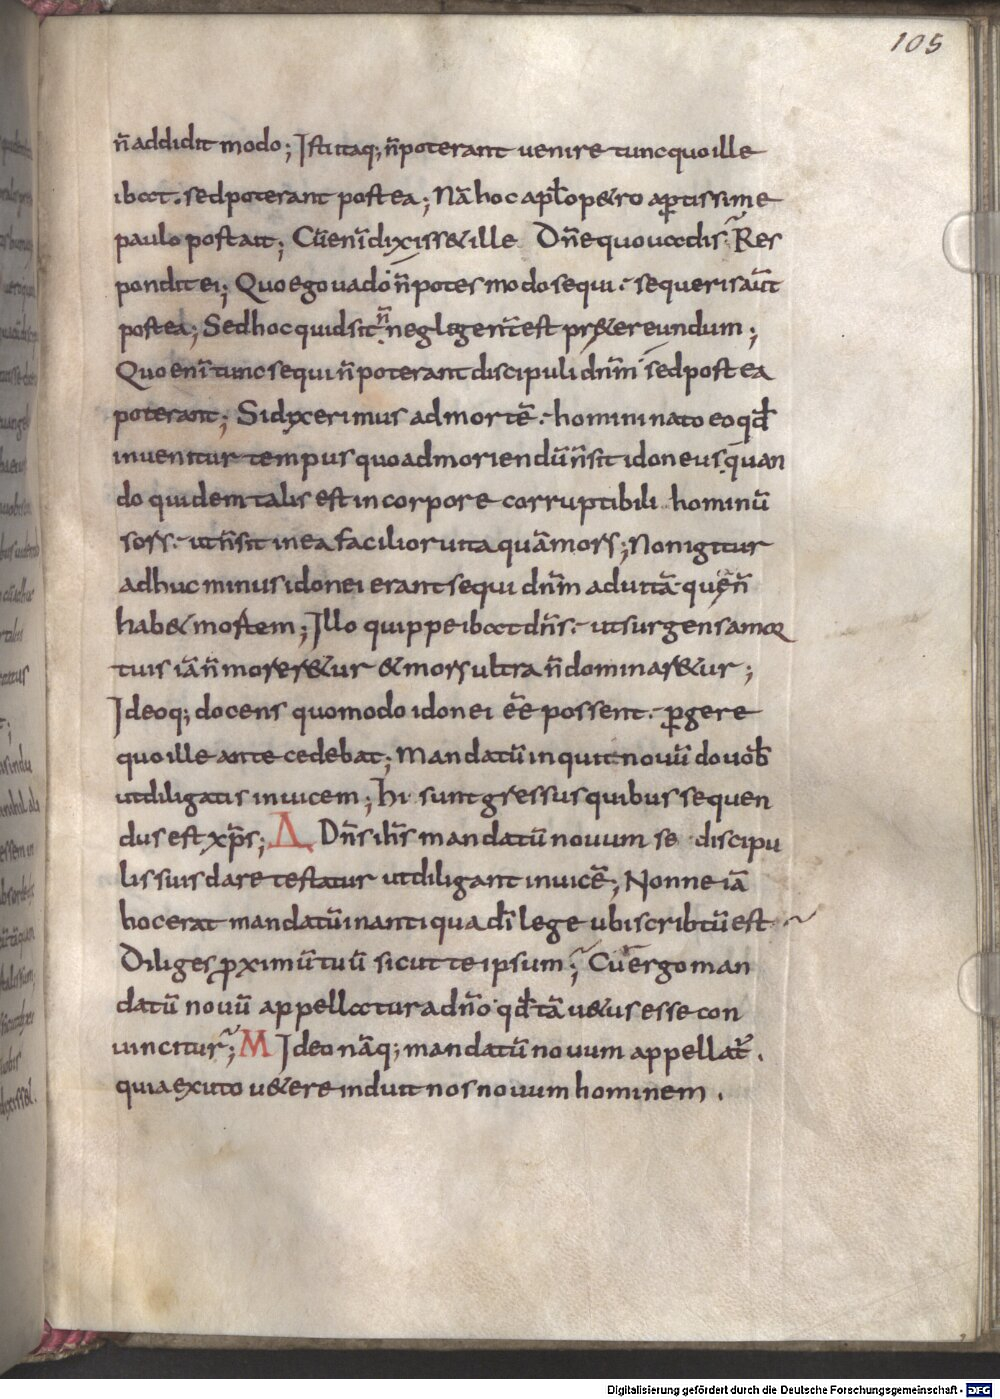 105
n̄ addidit modo; Istiitaq; n̄ poterant uenire tunc quo ille
ibat. sed poterant postea; Nā hoc apl̄o petro aptissime
paulo post ait; Cū enī dixisset ille Dn̄e quo uadis. Res
pondit ei; Quo ego uado n̄ potes modo sequi. sequeris aūt
postea; Sed hoc quid sit n̄ neglegent̄ est pretereundum;
Quo enī tunc sequi n̄ poterant discipuli dn̄m sed postea
poterant; Si dixerimus ad mortē. homini nato eo qđ
inuenitur tempus quo ad moriendū n̄ sit idoneus, quan
do quidem talis est in corpore corruptibili hominū
sors. ut n̄ sit in ea facilior uita quā mors; Non igitur
adhuc minus idonei erant sequi dn̄m ad uitā. quē n̄
habet mortem; Illo quippe ibat dn̄s. ut surgens a mor
tuis iā n̄ moreretur & mors ultra n̄ dominaretur;
Ideoq; docens quomodo idonei eē possent. pgere
quo ille antecedebat; Mandatū inquit nouū do uob̄
ut diligatis inuicem; Hi sunt gressus quibus sequen
dus est xp̄s; Δ Dn̄s ih̄s mandatū nouum se discipu
lis suis dare testatur ut diligant inuicē; Nonne iā
hoc erat mandatū in antiqua dī lege ubi scribtū est
Diliges proximū tuū sicut te ipsum; Cur ergo man
datū nouū appellatur a dn̄o qđ tā uetus esse con
uincitur; M Ideo nāq; mandatū nouum appellat̄.
quia exuto uetere induit nos nouum hominem.
Digitalisierung gefördert durch die Deutsche Forschungsgemeinschaft - DFG